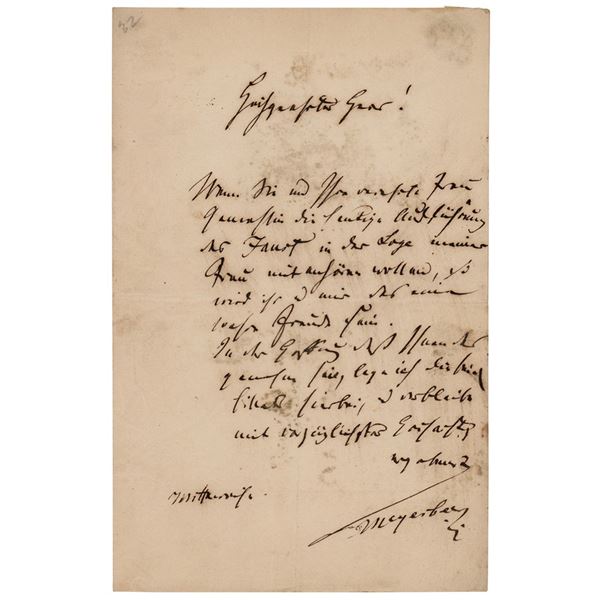 32
Hochgeehrter Herr!
Wenn Sie und Ihre verehrte Frau
Gemahlin die heutige Aufführung
des Faust in der Loge meiner
Frau mit anhören wollen, so
wird ihr u mir das eine
wahre Freude sein.
In der Hoffnung daß Ihnen das
genehm sei, lege ich die
Billets hierbei, u verbleibe
mit vorzüglichster Hochachtg
ergebenst
Mittwoch.
Meyerbeer